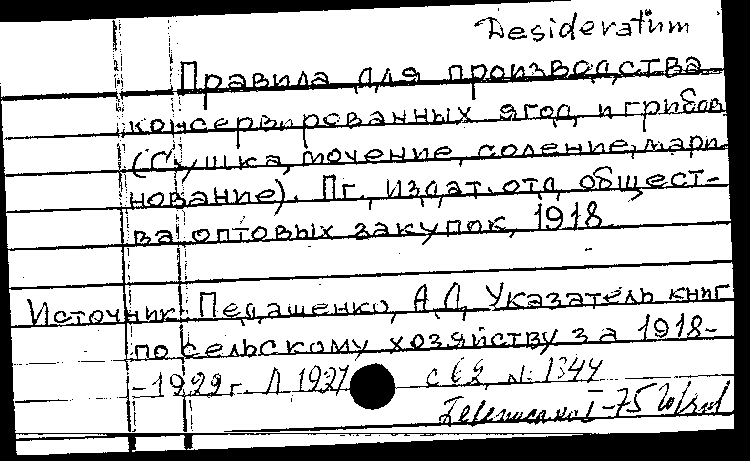 Desideratum
Правила для производства
консервированных ягод и грибов
(Сушка, мочение, соление, мари-
нование). Пг., Издат. отд. общест-
ва оптовых закупок, 1918.
Источник: Педашенко, А.Д. Указатель книг
по сельскому хозяйству за 1918-
-1922 г. Л. 1927 с 62, N: 1344